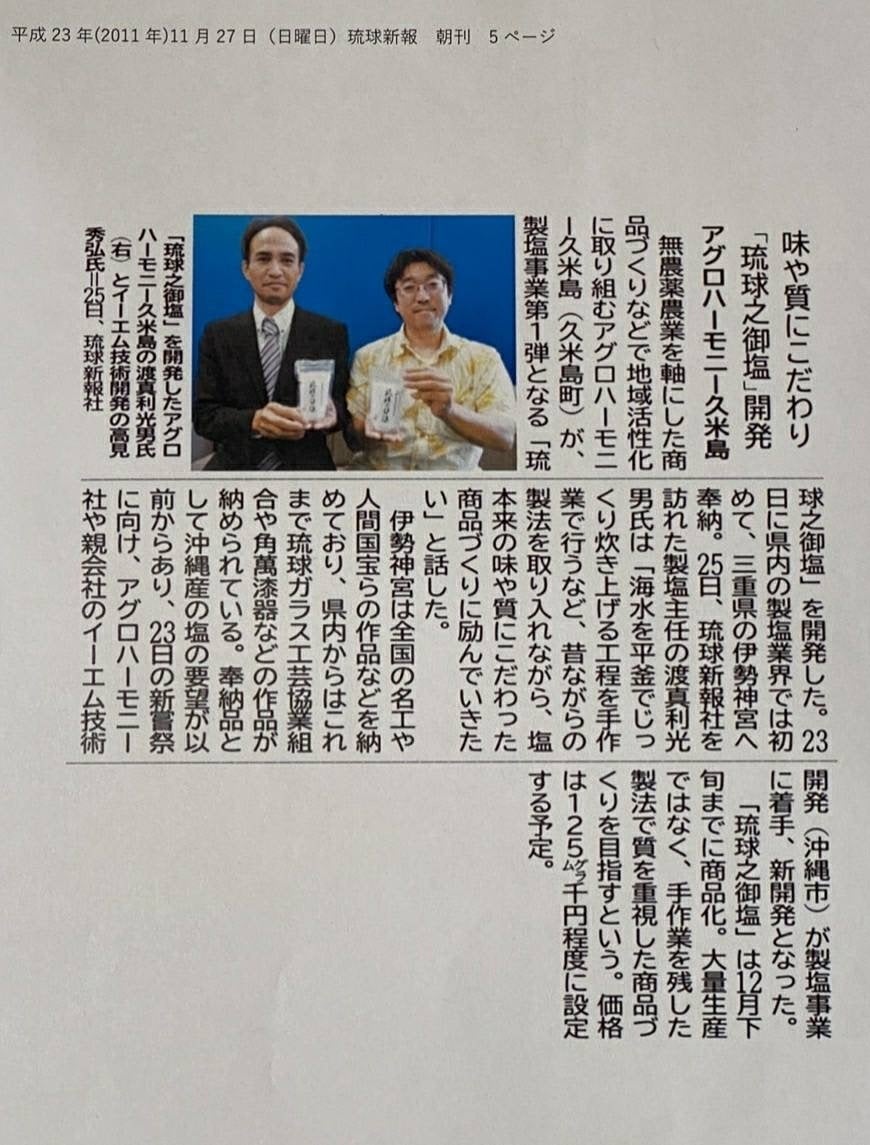 平成23年(2011年)11月27日（日曜日）琉球新報　朝刊　5ページ
味や質にこだわり
「琉球之御塩」開発
アグロハーモニー久米島
無農薬農業を軸にした商
品づくりなどで地域活性化
に取り組むアグロハーモニ
ー久米島（久米島町）が、
製塩事業第1弾となる「琉
「琉球之御塩」を開発したアグロ
ハーモニー久米島の渡真利光男氏
（右）とイーエム技術開発の高見
秀弘氏＝25日、琉球新報社
球之御塩」を開発した。23
日に県内の製塩業界では初
めて、三重県の伊勢神宮へ
奉納。25日、琉球新報社を
訪れた製塩主任の渡真利光
男氏は「海水を平釜でじっ
くり炊き上げる工程を手作
業で行うなど、昔ながらの
製法を取り入れながら、塩
本来の味や質にこだわった
商品づくりに励んでいきた
い」と話した。
伊勢神宮は全国の名工や
人間国宝らの作品などを納
めており、県内からはこれ
まで琉球ガラス工芸協業組
合や角萬漆器などの作品が
納められている。奉納品と
して沖縄産の塩の要望が以
前からあり、23日の新嘗祭
に向け、アグロハーモニー
社や親会社のイーエム技術
開発（沖縄市）が製塩事業
に着手、新開発となった。
「琉球之御塩」は12月下
旬までに商品化。大量生産
ではなく、手作業を残した
製法で質を重視した商品づ
くりを目指すという。価格
は125グラム千円程度に設定
する予定。